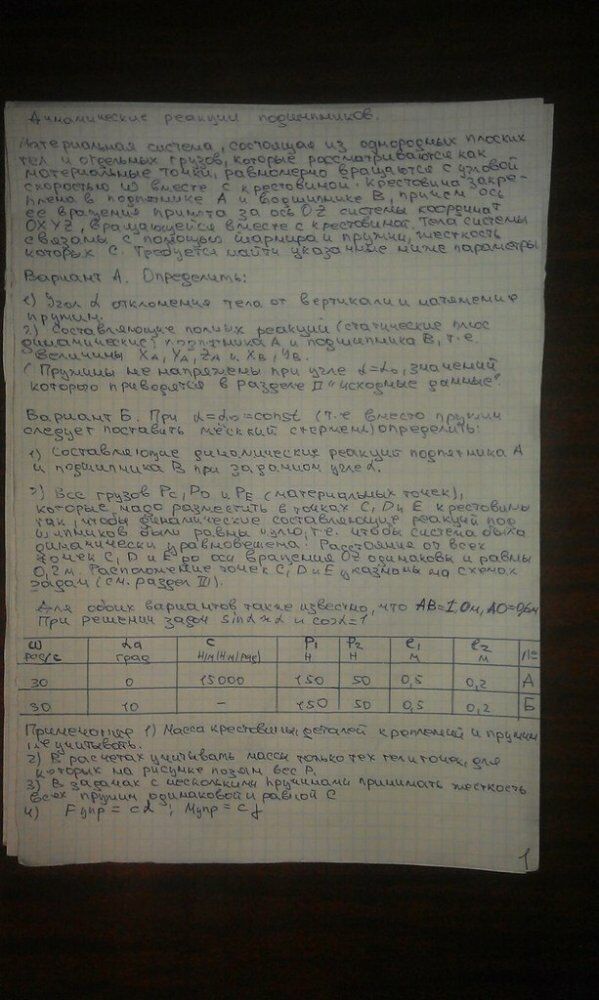 Динамические реакции подшипников.
Материальная система, состоящая из однородных плоских
тел и отдельных грузов, которые рассматриваются как
материальные точки, равномерно вращаются с угловой
скоростью ω вместе с крестовиной. Крестовина закре-
плена в подпятнике А и подшипнике В, причем ось
ее вращения принята за ось OZ системы координат
OXYZ, вращающейся вместе с крестовиной. Тела системы
связаны с помощью шарнира и пружин, жесткость
которых С. Требуется найти указанные ниже параметры
Вариант А. Определить:
1) Угол α отклонения тела от вертикали и натяжение
пружин.
2) Составляющие полных реакций (статические плюс
динамические) подпятника А и подшипника В, т.е.
величины XA, YA, ZA и XB, YB.
(Пружины не напряжены при угле α=α₀, значений
которого приводятся в разделе II "исходные данные"
Вариант Б. При α=α₀=const (т.е вместо пружин
следует поставить жёский стержень) определить:
1) Составляющие динамические реакций подпятника А
и подшипника В при заданном угле α.
2) Вес грузов PC, PD и PE (материальных точек),
которые надо разместить в точках C, D и E крестовины
так, чтобы динамические составляющие реакций под-
шипников были равны нулю, т.е. чтобы система была
динамически уравновешена. Расстояние от всех
точек C, D и E до оси вращения OZ одинаковы и равны
0,2м. Расположение точек C, D и E указаны на схемах
задач (см. раздел III).
Для обоих вариантов также известно, что АВ=1,0м, АО=0,6м
При решении задач sinα≈α и cosα=1
ω рад/с α₀ град С н/м(нм/рад) P₁ н P₂ н ℓ₁ м ℓ₂ м №
30 0 15000 150 50 0,5 0,2 А
30 10 - 150 50 0,5 0,2 Б
Примечание 1) Масса крестовины, деталей креплений и пружин
не учитывать.
2) В расчетах учитывать массы только тех тел и точек, для
которых на рисунке показан вес Р.
3) В задачах с несколькими пружинами принимать жесткость
всех пружин одинаковой и равной С
4) Fупр = cλ ; Mупр = cγ
1